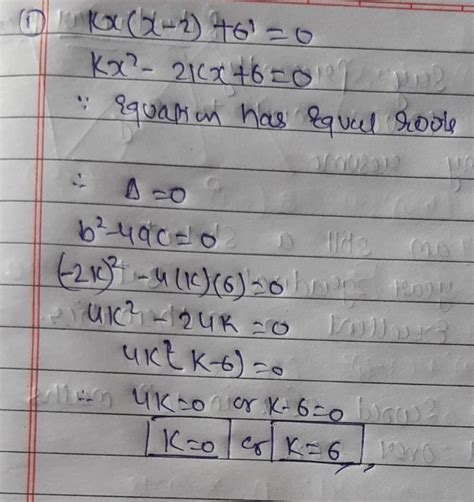 ① Kx(x-2)+6=0
Kx²-2Kx+6=0
∵ Equation has Equal roots
∴ Δ=0
b²-4ac=0
(-2K)²-4(K)(6)=0
4K²-24K=0
4K(K-6)=0
∴ 4K=0 or K-6=0
K=0 or K=6